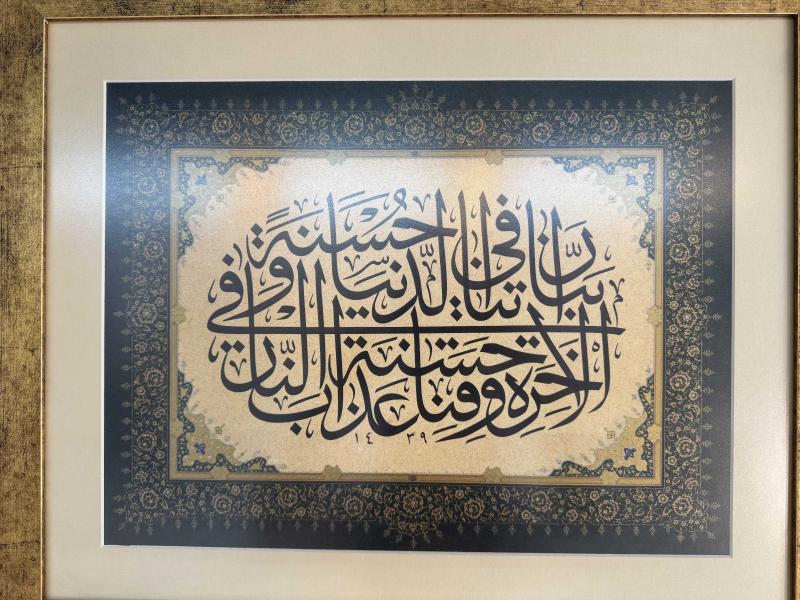 ربنا آتنا في الدنيا حسنة وفي
الآخرة حسنة وقنا عذاب النار
١٤٣٩